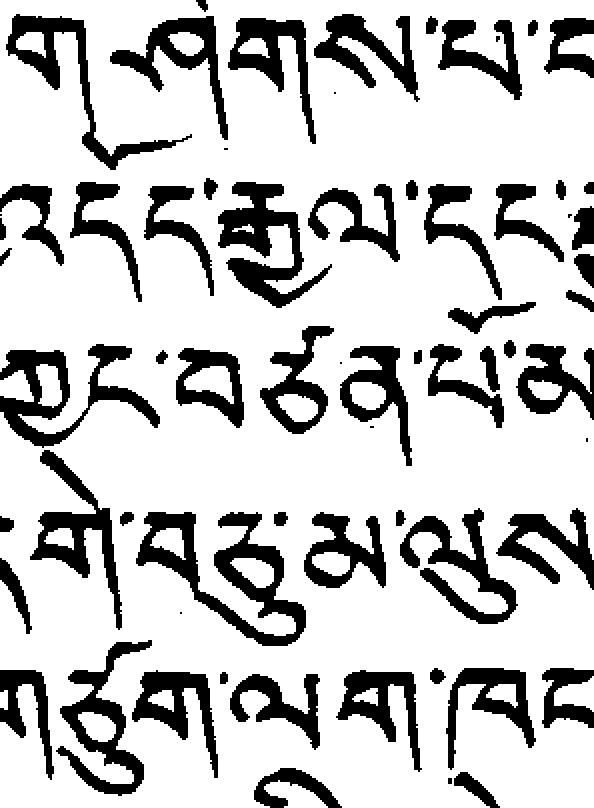 གཤེགས་པ་ད
འདོད་རྒྱལ་དང་
ཀྱང་བཙན་པོ་མ
དགེ་བཅུ་མ་ལུས
གཙུག་ལག་ཁང